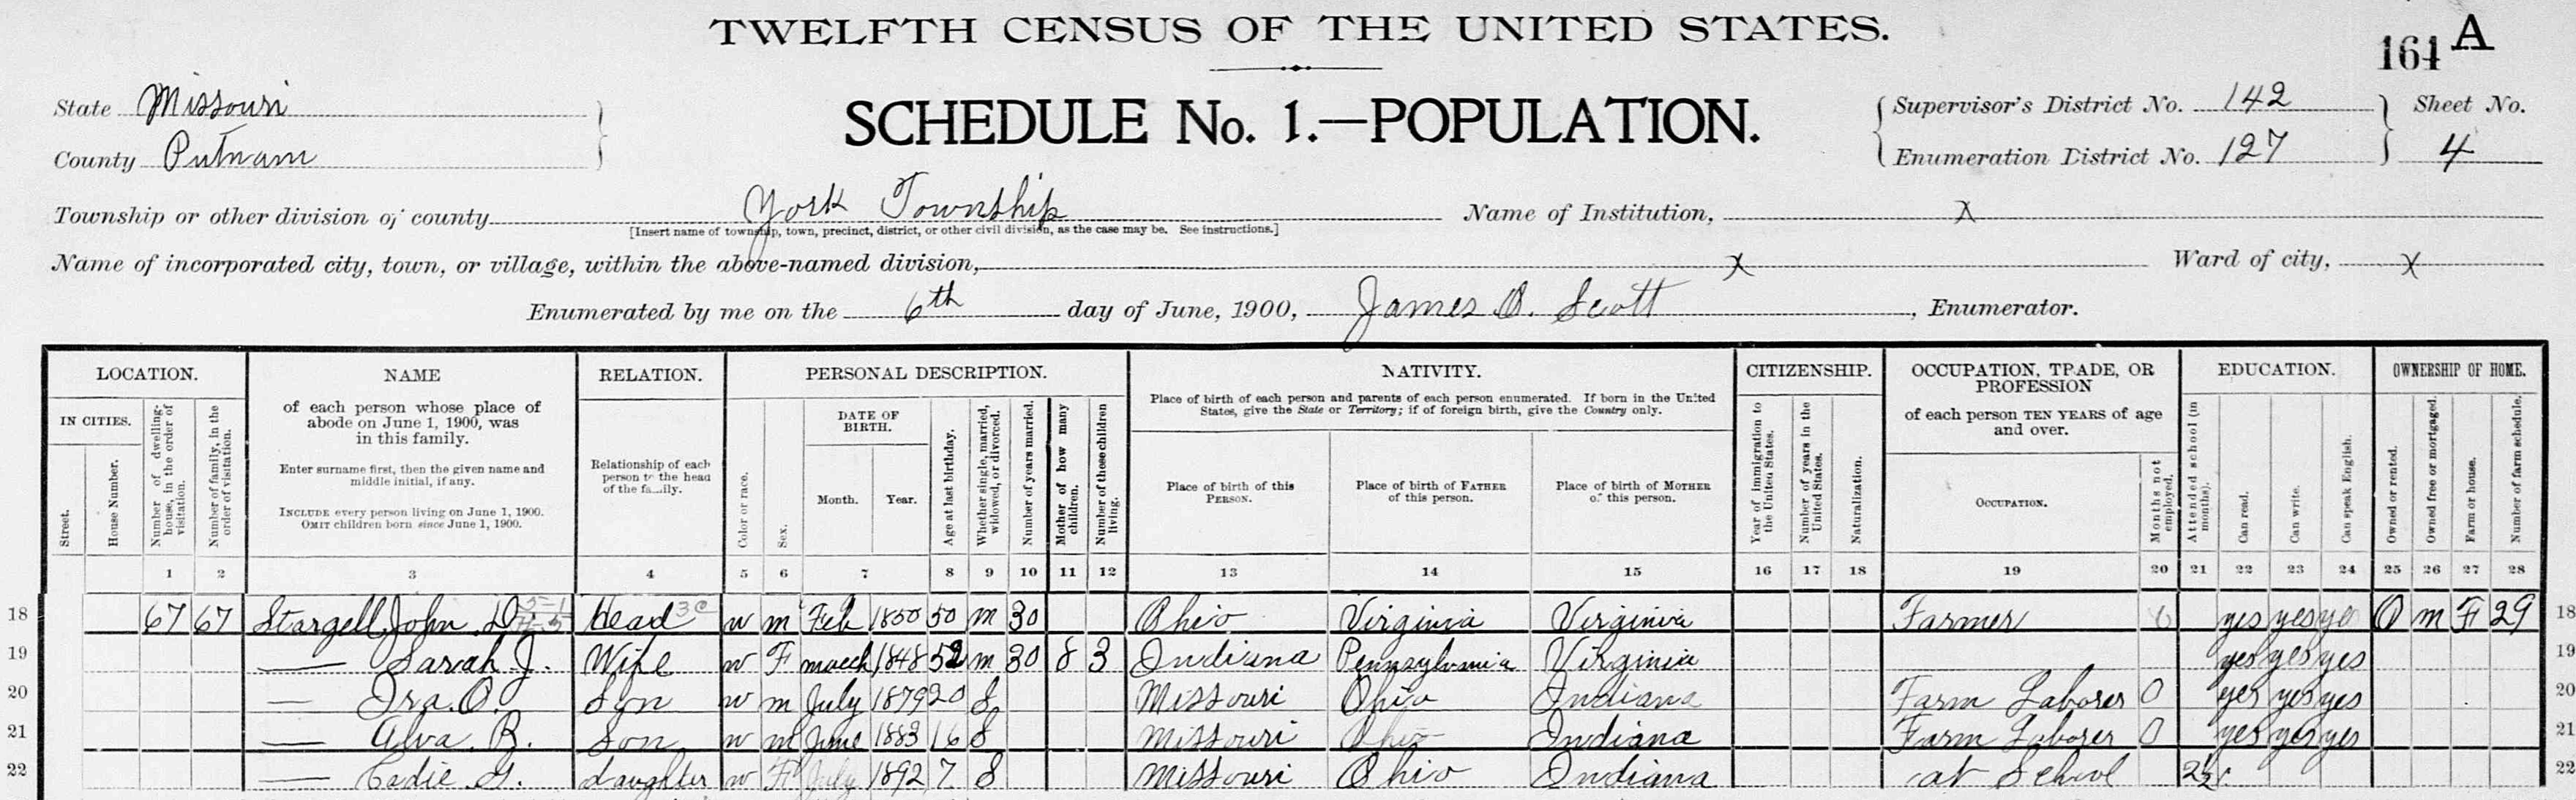 TWELFTH CENSUS OF THE UNITED STATES.
164 A
SCHEDULE No. 1.—POPULATION.
State Missouri
County Putnam
Supervisor's District No. 142
Enumeration District No. 127
Sheet No.
4
Township or other division of county York Township
[Insert name of township, town, precinct, district, or other civil division, as the case may be. See instructions.]
Name of Institution, X
Name of incorporated city, town, or village, within the above-named division, X
Ward of city, X
Enumerated by me on the 6th day of June, 1900, James O. Scott, Enumerator.
LOCATION. NAME RELATION. PERSONAL DESCRIPTION. NATIVITY. CITIZENSHIP. OCCUPATION, TRADE, OR PROFESSION EDUCATION. OWNERSHIP OF HOME.
IN CITIES.
Street.
House Number.
Number of dwelling-house, in the order of visitation.
Number of family, in the order of visitation.
of each person whose place of abode on June 1, 1900, was in this family.
Enter surname first, then the given name and middle initial, if any.
INCLUDE every person living on June 1, 1900.
OMIT children born since June 1, 1900.
Relationship of each person to the head of the family.
Color or race.
Sex.
DATE OF BIRTH.
Month. Year.
Age at last birthday.
Whether single, married, widowed, or divorced.
Number of years married.
Mother of how many children.
Number of these children living.
Place of birth of each person and parents of each person enumerated. If born in the United States, give the State or Territory; if of foreign birth, give the Country only.
Place of birth of this PERSON.
Place of birth of FATHER of this person.
Place of birth of MOTHER of this person.
Year of immigration to the United States.
Number of years in the United States.
Naturalization.
of each person TEN YEARS of age and over.
OCCUPATION.
Months not employed.
Attended school (in months).
Can read.
Can write.
Can speak English.
Owned or rented.
Owned free or mortgaged.
Farm or house.
Number of farm schedule.
1 2 3 4 5 6 7 8 9 10 11 12 13 14 15 16 17 18 19 20 21 22 23 24 25 26 27 28
18 67 67 Stargell, John D Head w m Feb 1850 50 m 30 Ohio Virginia Virginia Farmer yes yes ye O m F 29 18
19 — Sarah J. Wife w F march 1848 52 m 30 8 3 Indiana Pennsylvania Virginia yes yes yes 19
20 — Ira O. Son w m July 1879 20 S Missouri Ohio Indiana Farm Laborer 0 yes yes yes 20
21 — Alva R. Son w m June 1883 16 S Missouri Ohio Indiana Farm Laborer 0 yes yes yes 21
22 — Cadie G. daughter w F July 1892 7 S Missouri Ohio Indiana at School 2½ 22